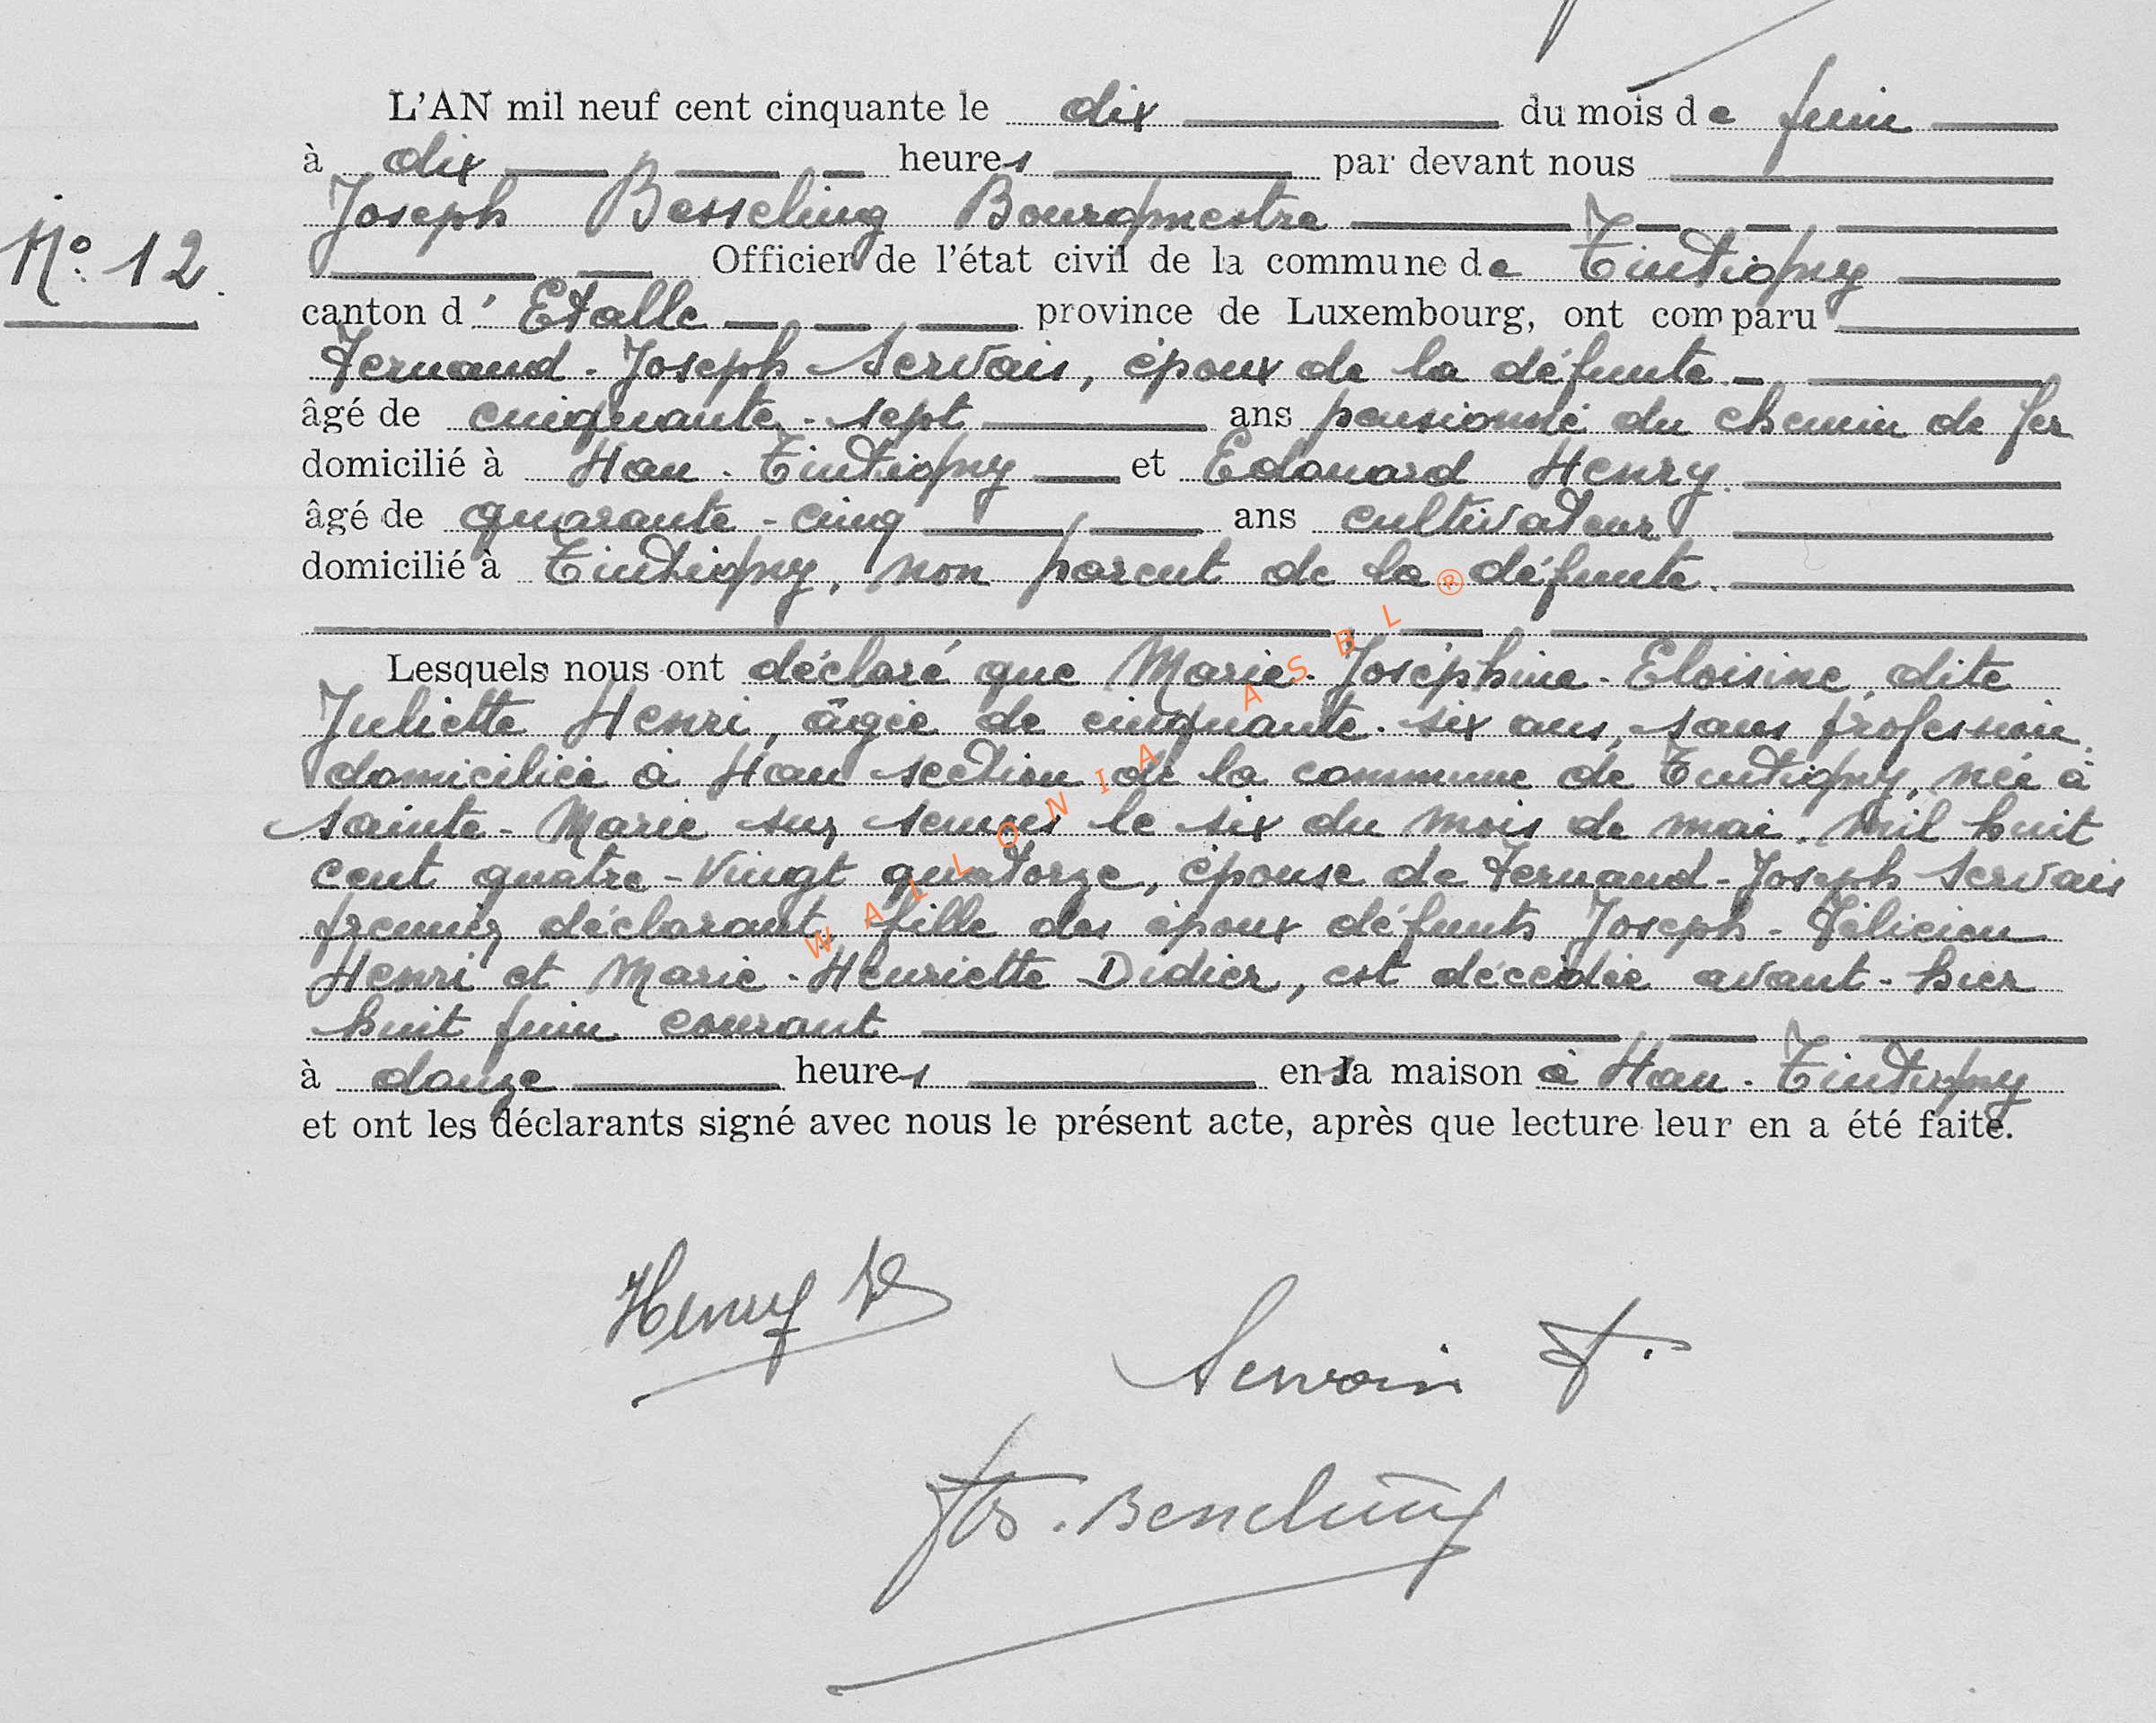 L'AN mil neuf cent cinquante le dix du mois de juin
à dix heures par devant nous
Joseph Besseling Bourgmestre
N° 12.
Officier de l'état civil de la commune de Tintigny
canton d' Etalle province de Luxembourg, ont comparu
Fernand-Joseph Servais, époux de la défunte
âgé de cinquante-sept ans pensionné du chemin de fer
domicilié à Han-Tintigny et Edouard Henry.
âgé de quarante-cinq ans cultivateur
domicilié à Tintigny, non parent de la défunte.
Lesquels nous ont déclaré que Marie-Joséphine-Eloisine, dite
Juliette Henri, âgée de cinquante-six ans, sans profession,
domiciliée à Han section de la commune de Tintigny, née à
Sainte-Marie sur Semois le six du mois de mai mil huit
cent quatre-vingt quatorze, épouse de Fernand-Joseph Servais
premier déclarant, fille des époux défunts Joseph-Félicien
Henri et Marie-Henriette Didier, est décédée avant-hier
huit juin courant
à douze heures en sa maison à Han-Tintigny
et ont les déclarants signé avec nous le présent acte, après que lecture leur en a été faite.
WALLONIA ASBL ®
Henry
Servais F.
Jos. Besseling